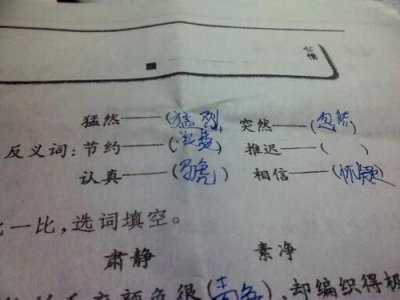 心情
猛然——(猛烈) 突然——(忽然)
反义词:节约——(浪费) 推迟——( )
认真——(马虎) 相信——(怀疑)
比一比,选词填空。
肃静 素净
颜色很(素色),却编织得极